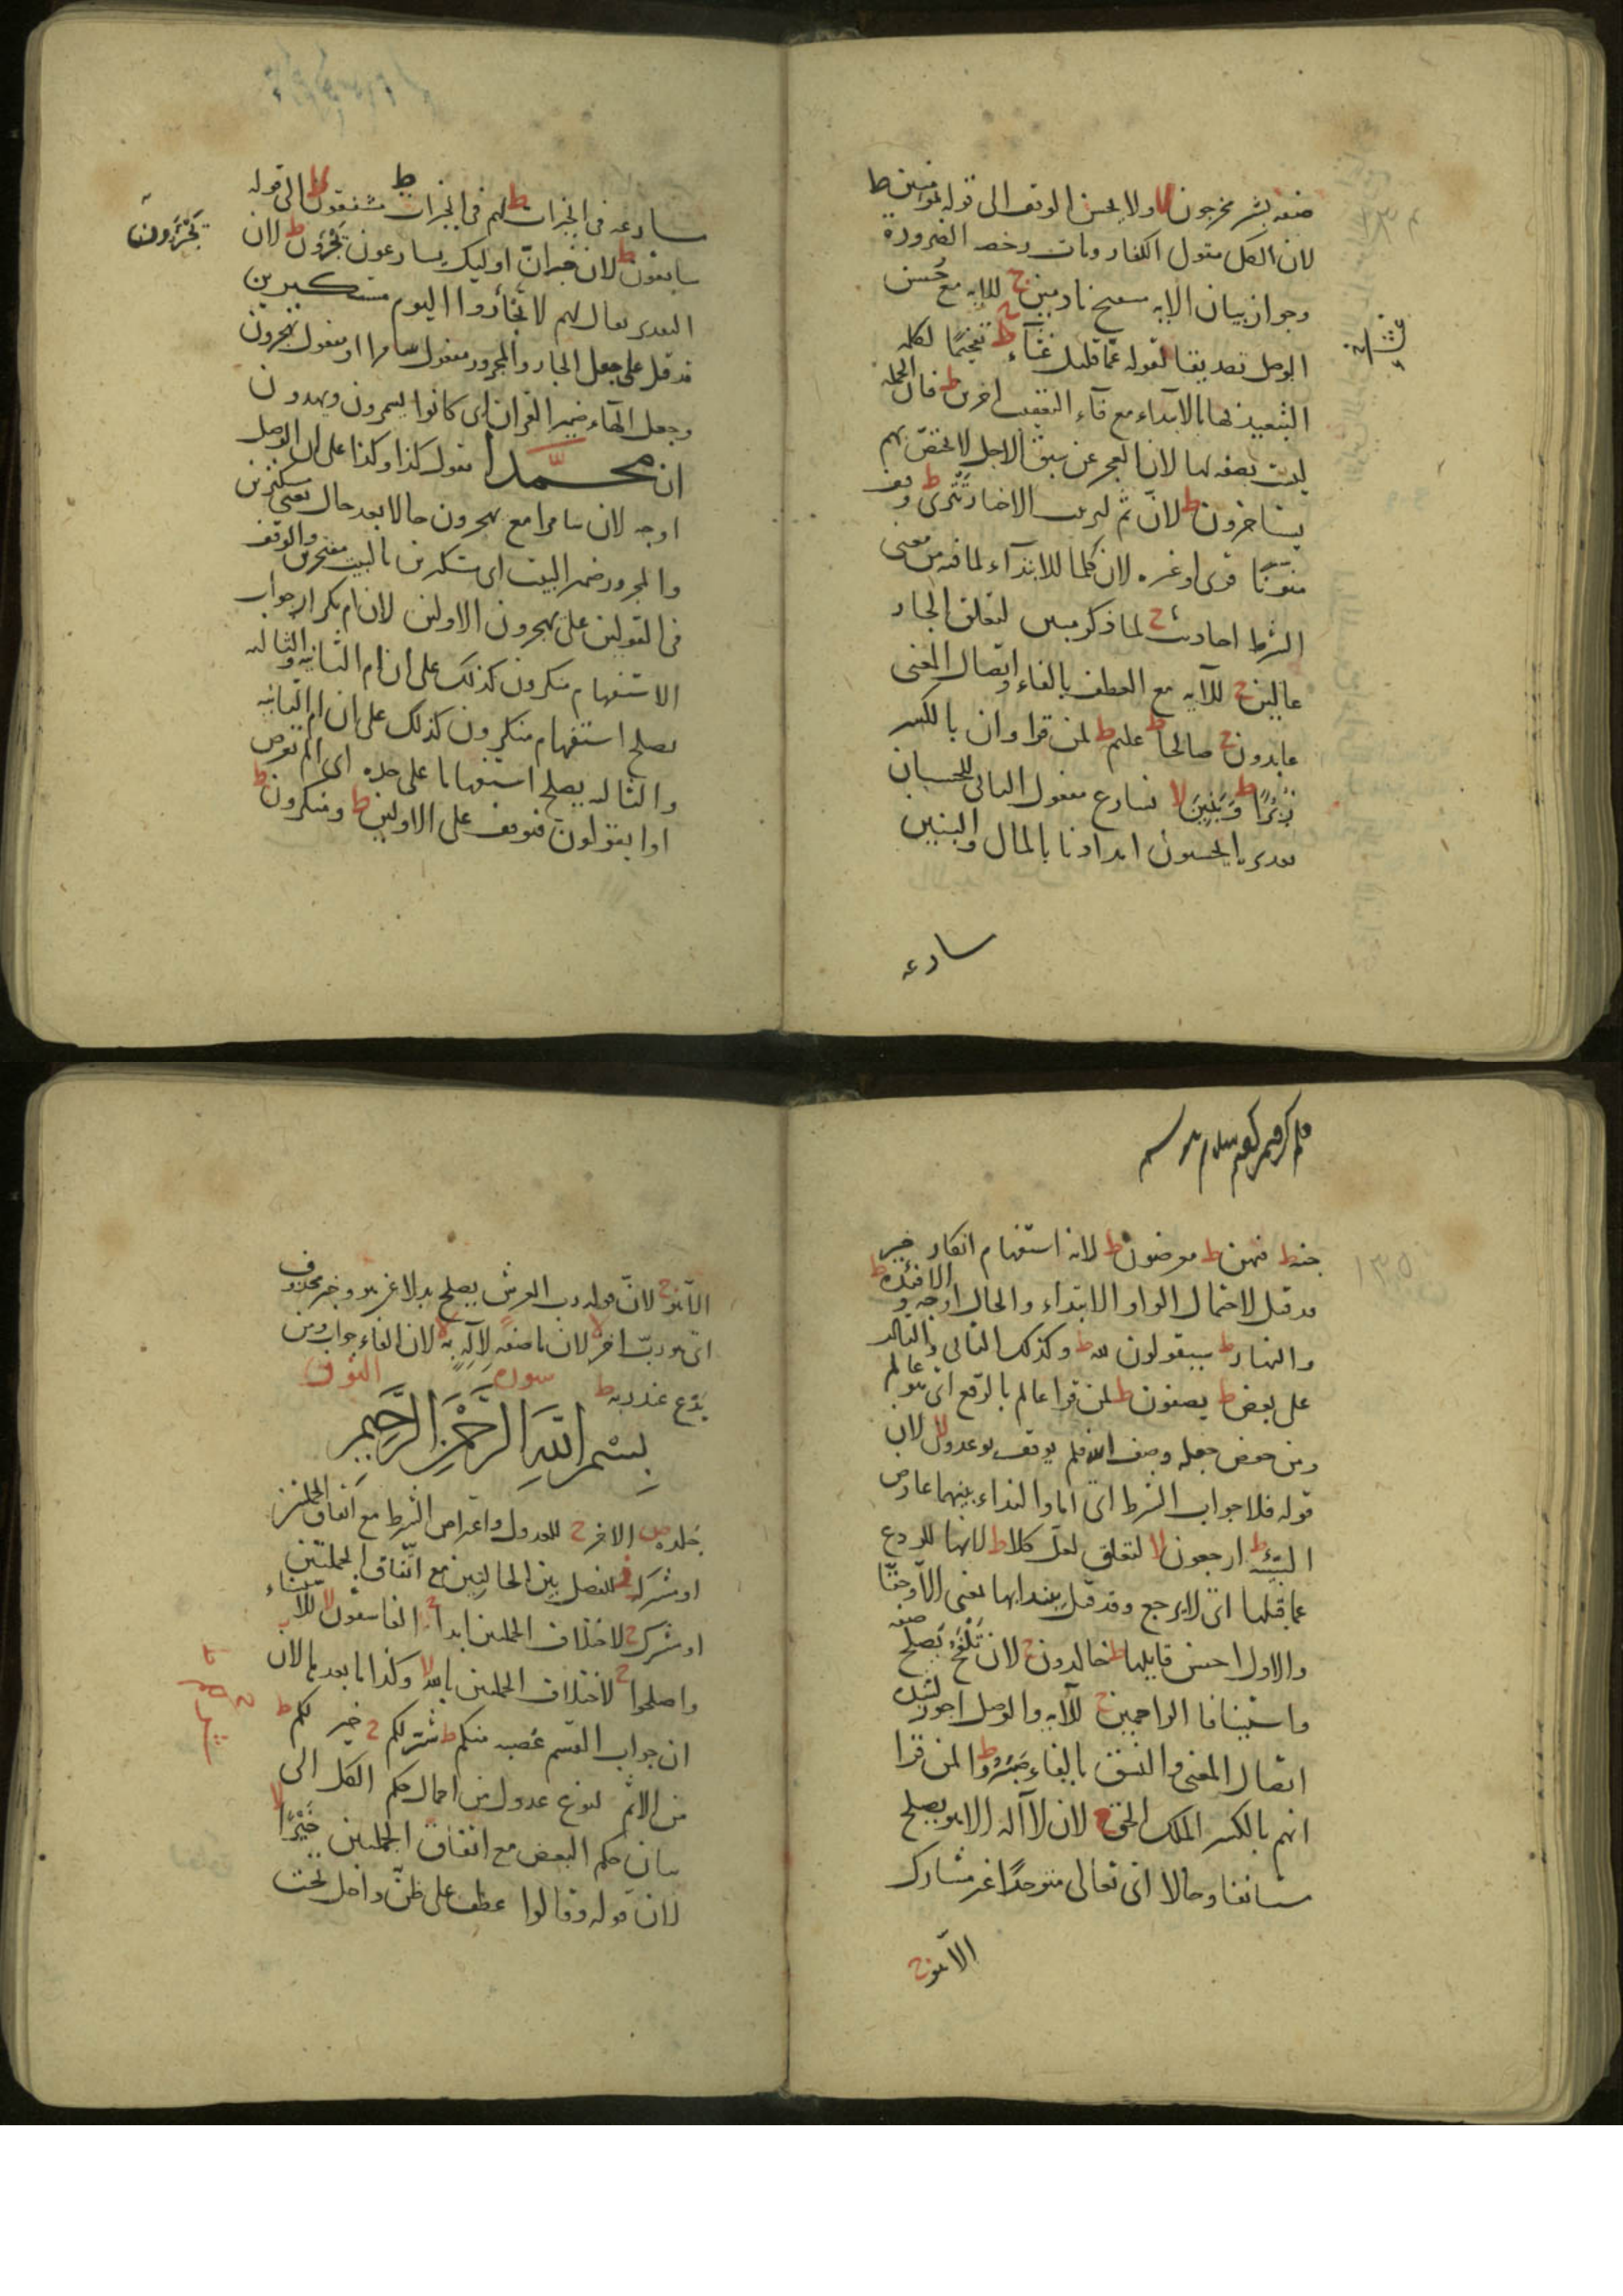 صفة بشر مخرجون لا ولا يحسن الوقف الى قوله بمؤمنين ط
لان الكل مقول الكفار ومات رخصه الضرورة
وجواز بيان الاية سميع نادمين ج للاية مع حسن
الوصل تصديقا لقوله عما قليل غثاء ج تفخيما لكلمة
التبعيد لها بالابتداء مع فاء التعقيب اخرين ط فان الجملة
ليست بصفة لها لان العجز عن سبق الاجل لا يختص بهم
يستاخرون ط لان ثم لترتيب الاخبار تترى ط وقف
منونا قرى او غيره لان كلما للابتداء لما فيه من معنى
الشرط احاديث ج لما ذكر مبين لتعلق الجار
عالين ج للآية مع العطف بالفاء واتصال المعنى
عابدون ج صالحا ط عليم ط لمن قرا وان بالكسر
زبرا ط وبنين لا نسارع مفعول الثاني للحسبان
تقديره ايحسبون امدادنا بالمال والبنين
سارعه
سارعه في الخيرات ط لهم في الخيرات ط مشفقون لا الى قوله
سابقون ط لان خبر ان اوليك يسارعون يجرون ط لان
يجرون
التقدير يقال لهم لا تجأروا اليوم مستكبرين
قد قيل على جعل الجار والمجرور مفعول سامرا او مفعول تهجرون
وجعل الهاء ضمير القران اى كانوا يسمرون ويهدون
ان محمدا يقول كذا وكذا على ان الوصل
اوجه لان سامرا مع تهجرون حالا بعد حال يعني مستكبرين
والمجرور ضمير البيت اى مستكبرين بالبيت مفتخرين والوقف
في القولين على تهجرون الاولين لان ام تكرار جواب
الاستفهام منكرون كذلك على ان ام الثانية والثالثة
يصلح استفهام منكرون كذلك على ان ام الثانية
والثالثة يصلح استفهاما على حده اى الم
او ايقولون فيوقف على الاولين ط ومنكرون ط
جنة ط فيهن ط معرضون ط لانه استفهام انكار خير
قد قيل لاحتمال الواو الابتداء والحال اوجه و الافئدة ط
والنهار ط سيقولون لله ط وكذلك الثاني والثالث
على بعض ط يصفون ط لمن قرا عالم بالرفع اى هو عالم
ومن خفض جعله وصف الله فلم يوقف يوعدون لا لان
قوله فلا جواب الشرط اى اما والنداء بينهما عارض
السيئة ط ارجعون لا لتعلق لعل كلا ط لانها للردع
عما قبلها اى لا يرجع وقد قيل يبتدا بها بمعنى الا وحقا
والاول احسن قايلها ط خالدون ج لان تلفح يصلح صفة
واستينافا الراحمين ج للآية والوصل اجوز لشدة
اتصال المعنى والنسق بالفاء صبروا ط لمن قرا
انهم بالكسر الملك الحق ج لان لا اله الا هو يصلح
مستانفا وحالا اى تعالى متوحدا غير مشارك
الا هو ج
الا هو ج لان قوله رب العرش يصلح بدلا عن هو وخبر محذوف
اى هو رب اخر لا لان ما صفة لاله به لا لان الفاء جواب ومن
يدع عند ربه ط سورة النور
بسم الله الرحمن الرحيم
جلدة ص الاخر ج للعدول واعتراض الشرط مع اتفاق الجملتين
او مشركة ز للفصل بين الحالتين مع اتفاق الجملتين
او مشرك ج لاختلاف الجملتين ابدا ج الفاسقون لا للاستثناء
واصلحوا ج لاختلاف الجملتين بالله لا وكذا ما بعد بالله لان
ان جواب القسم عصبة منكم ط شرا لكم ج خير لكم ط
من الاثم لنوع عدول من اجمال حكم الكل الى
بيان حكم البعض مع اتفاق الجملتين خيرا لا
لان قوله وقالوا عطف على ظن داخل تحت